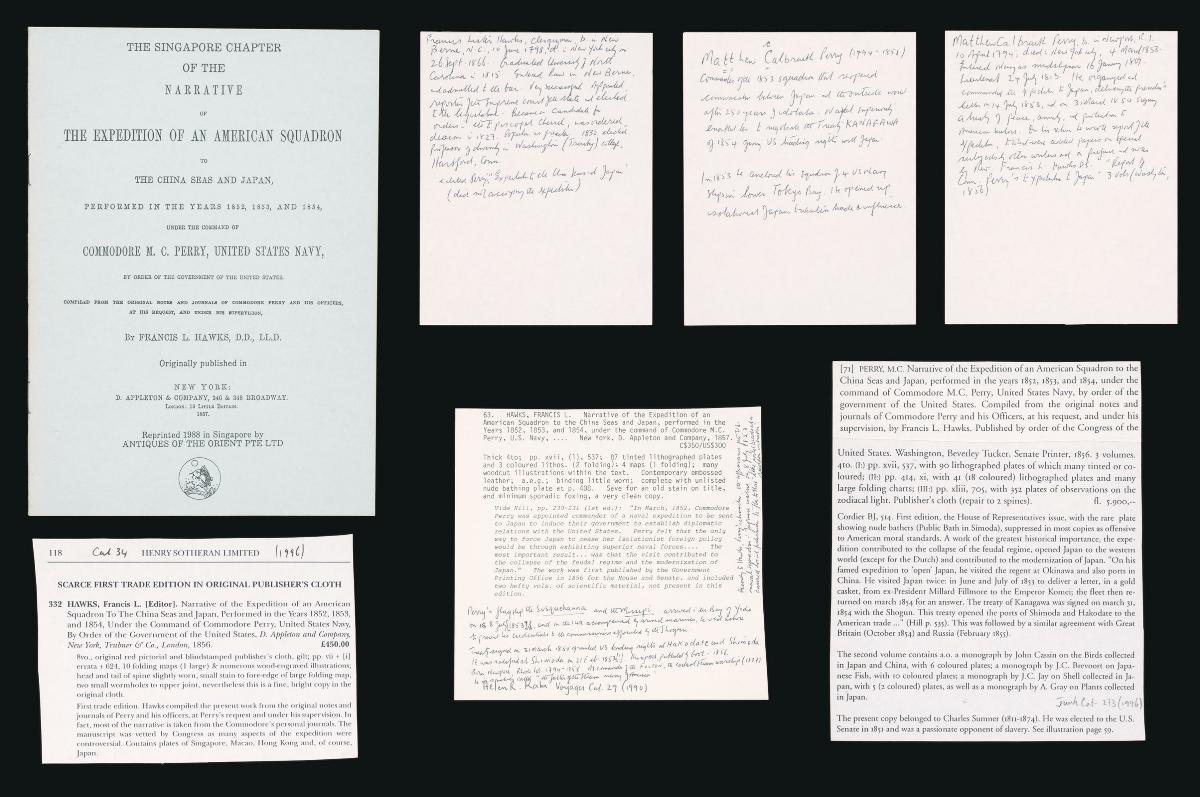 THE SINGAPORE CHAPTER
OF THE
NARRATIVE
OF
THE EXPEDITION OF AN AMERICAN SQUADRON
TO
THE CHINA SEAS AND JAPAN,
PERFORMED IN THE YEARS 1852, 1853, AND 1854,
UNDER THE COMMAND OF
COMMODORE M. C. PERRY, UNITED STATES NAVY,
BY ORDER OF THE GOVERNMENT OF THE UNITED STATES.
COMPILED FROM THE ORIGINAL NOTES AND JOURNALS OF COMMODORE PERRY AND HIS OFFICERS,
AT HIS REQUEST, AND UNDER HIS SUPERVISION,
BY FRANCIS L. HAWKS, D.D., LL.D.
Originally published in
NEW YORK:
D. APPLETON & COMPANY, 346 & 348 BROADWAY.
LONDON: 16 LITTLE BRITAIN.
1857.
Reprinted 1988 in Singapore by
ANTIQUES OF THE ORIENT PTE LTD
Francis Lister Hawks, Clergyman, b. in New
Berne, N.C., 10 June 1798, d. in New York city on
26 Sept. 1866. Graduated University of North
Carolina in 1815. Entered law in New Berne,
admitted to the bar. Very successful. Appointed
reporter for Supreme court of the state and elected
to the legislature. Became a candidate for
orders in the Episcopal Church, was ordered
deacon in 1827. Popular as preacher. 1832 elected
professor of divinity in Washington (Trinity) college,
Hartford, Conn.
edited Perry's "Expedition to the China Seas & Japan"
(did not accompany the expedition)
Matthew Calbraith Perry (1794-1858)
Commander of the 1853 squadron that reopened
communication between Japan and the outside world
after 250 years of isolation.
enabled him to negotiate the Treaty KANAGAWA
of 1854 giving US trading rights with Japan
In 1853 he anchored his squadron of 4 US Navy
ships in lower Tokyo Bay. He opened up
isolationist Japan to western trade & influence.
Matthew Calbraith Perry, b. in Newport, R.I.
10 April 1794; died in New York city, 4 March 1858.
Entered Navy as midshipman 16 January 1809.
Lieutenant 27 July 1813. He organized and
commanded the expedition to Japan, delivering the president's
letter on 14 July 1853, and on 31 March 1854 signing
a treaty of peace, amity, and protection to
American sailors. On his return he wrote report of the
expedition, to which were added papers on special
subjects by other writers and a preface and notes
by Rev. Francis L. Hawks DD. "Report of
Com. Perry's Expedition to Japan" 3 vols (Washington,
1856)
118 Cat 34 HENRY SOTHERAN LIMITED (1996)
SCARCE FIRST TRADE EDITION IN ORIGINAL PUBLISHER'S CLOTH
332 HAWKS, Francis L. [Editor]. Narrative of the Expedition of an American
Squadron To The China Seas and Japan, Performed in the Years 1852, 1853,
and 1854, Under the Command of Commodore Perry, United States Navy,
By Order of the Government of the United States, D. Appleton and Company,
New York, Trubner & Co., London, 1856. £450.00
8vo., original red pictorial and blindstamped publisher's cloth, gilt; pp. vii + [i]
errata + 624, 10 folding maps (1 large) & numerous wood-engraved illustrations;
head and tail of spine slightly worn, small stain to fore-edge of large folding map,
two small wormholes to upper joint, nevertheless this is a fine, bright copy in the
original cloth.
First trade edition. Hawks compiled the present work from the original notes and
journals of Perry and his officers, at Perry's request and under his supervision. In
fact, most of the narrative is taken from the Commodore's personal journals. The
manuscript was vetted by Congress as many aspects of the expedition were
controversial. Contains plates of Singapore, Macao, Hong Kong and, of course,
Japan.
63. HAWKS, FRANCIS L. Narrative of the Expedition of an
American Squadron to the China Seas and Japan, performed in the
Years 1852, 1853, and 1854, under the command of Commodore M.C.
Perry, U.S. Navy, .... New York, D. Appleton and Company, 1857.
C$350/US$300
Thick 4to; pp. xvii, (1), 537; 87 tinted lithographed plates
and 3 coloured lithos. (2 folding); 4 maps (1 folding); many
woodcut illustrations within the text. Contemporary embossed
leather; a.e.g.; binding little worn; complete with unlisted
nude bathing plate at p. 408. Save for an old stain on title,
and minimum sporadic foxing, a very clean copy.
Vide Hill, pp. 230-231 (1st ed.): "In March, 1852, Commodore
Perry was appointed commander of a naval expedition to be sent
to Japan to induce their government to establish diplomatic
relations with the United States. Perry felt that the only
way to force Japan to cease her isolationist foreign policy
would be through exhibiting superior naval forces.... The
most important result... was that the visit contributed to
the collapse of the feudal regime and the modernization of
Japan." The work was first published by the Government
Printing Office in 1856 for the House and Senate, and included
two hefty vols. of scientific material, not present in this
edition.
Perry's flagship the Susquehanna and the Mississippi arrived in Bay of Yedo
on 8 July 1853, and on the 14th accompanied by armed marines, he went ashore
to present his credentials to the commissioners appointed by the Shogun.
Treaty signed on 31 March 1854 granted US trading rights at Hakodate and Shimoda.
It was ratified at Shimoda on 21 Feb. 1855.
Helen R. Kahn Voyages Cat. 29 (1990)
[71] PERRY, M.C. Narrative of the Expedition of an American Squadron to the
China Seas and Japan, performed in the years 1852, 1853, and 1854, under the
command of Commodore M.C, Perry, United States Navy, by order of the
government of the United States. Compiled from the original notes and
journals of Commodore Perry and his Officers, at his request, and under his
supervision, by Francis L. Hawks. Published by order of the Congress of the
United States. Washington, Beverley Tucker, Senate Printer, 1856. 3 volumes.
4to. (I:) pp. xvii, 537, with 90 lithographed plates of which many tinted or co-
loured; (II:) pp. 414, xi, with 41 (18 coloured) lithographed plates and many
large folding charts; (III:) pp. xliii, 705, with 352 plates of observations on the
zodiacal light. Publisher's cloth (repair to 2 spines). fl. 5.900,--
Cordier BJ, 514. First edition, the House of Representatives issue, with the rare plate
showing nude bathers (Public Bath in Simoda), suppressed in most copies as offensive
to American moral standards. A work of the greatest historical importance, the expe-
dition contributed to the collapse of the feudal regime, opened Japan to the western
world (except for the Dutch) and contributed to the modernization of Japan. "On his
famed expedition to "open" Japan, he visited the regent at Okinawa and also ports in
China. He visited Japan twice: in June and July of 1853 to deliver a letter, in a gold
casket, from ex-President Millard Fillmore to the Emperor Komei; the fleet then re-
turned on march 1854 for an answer. The treaty of Kanagawa was signed on march 31,
1854 with the Shogun. This treaty opened the ports of Shimoda and Hakodate to the
American trade ..." (Hill p. 555). This was followed by a similar agreement with Great
Britain (October 1854) and Russia (February 1855).
The second volume contains a.o. a monograph by John Cassin on the Birds collected
in Japan and China, with 6 coloured plates; a monograph by J.C. Brevoort on Japa-
nese Fish, with 10 coloured plates; a monograph by J.C. Jay on Shell collected in Ja-
pan, with 5 (2 coloured) plates, as well as a monograph by A. Gray on Plants collected
in Japan.
Junk Cat. 273 (1996)
The present copy belonged to Charles Sumner (1811-1874). He was elected to the U.S.
Senate in 1851 and was a passionate opponent of slavery. See illustration page 59.